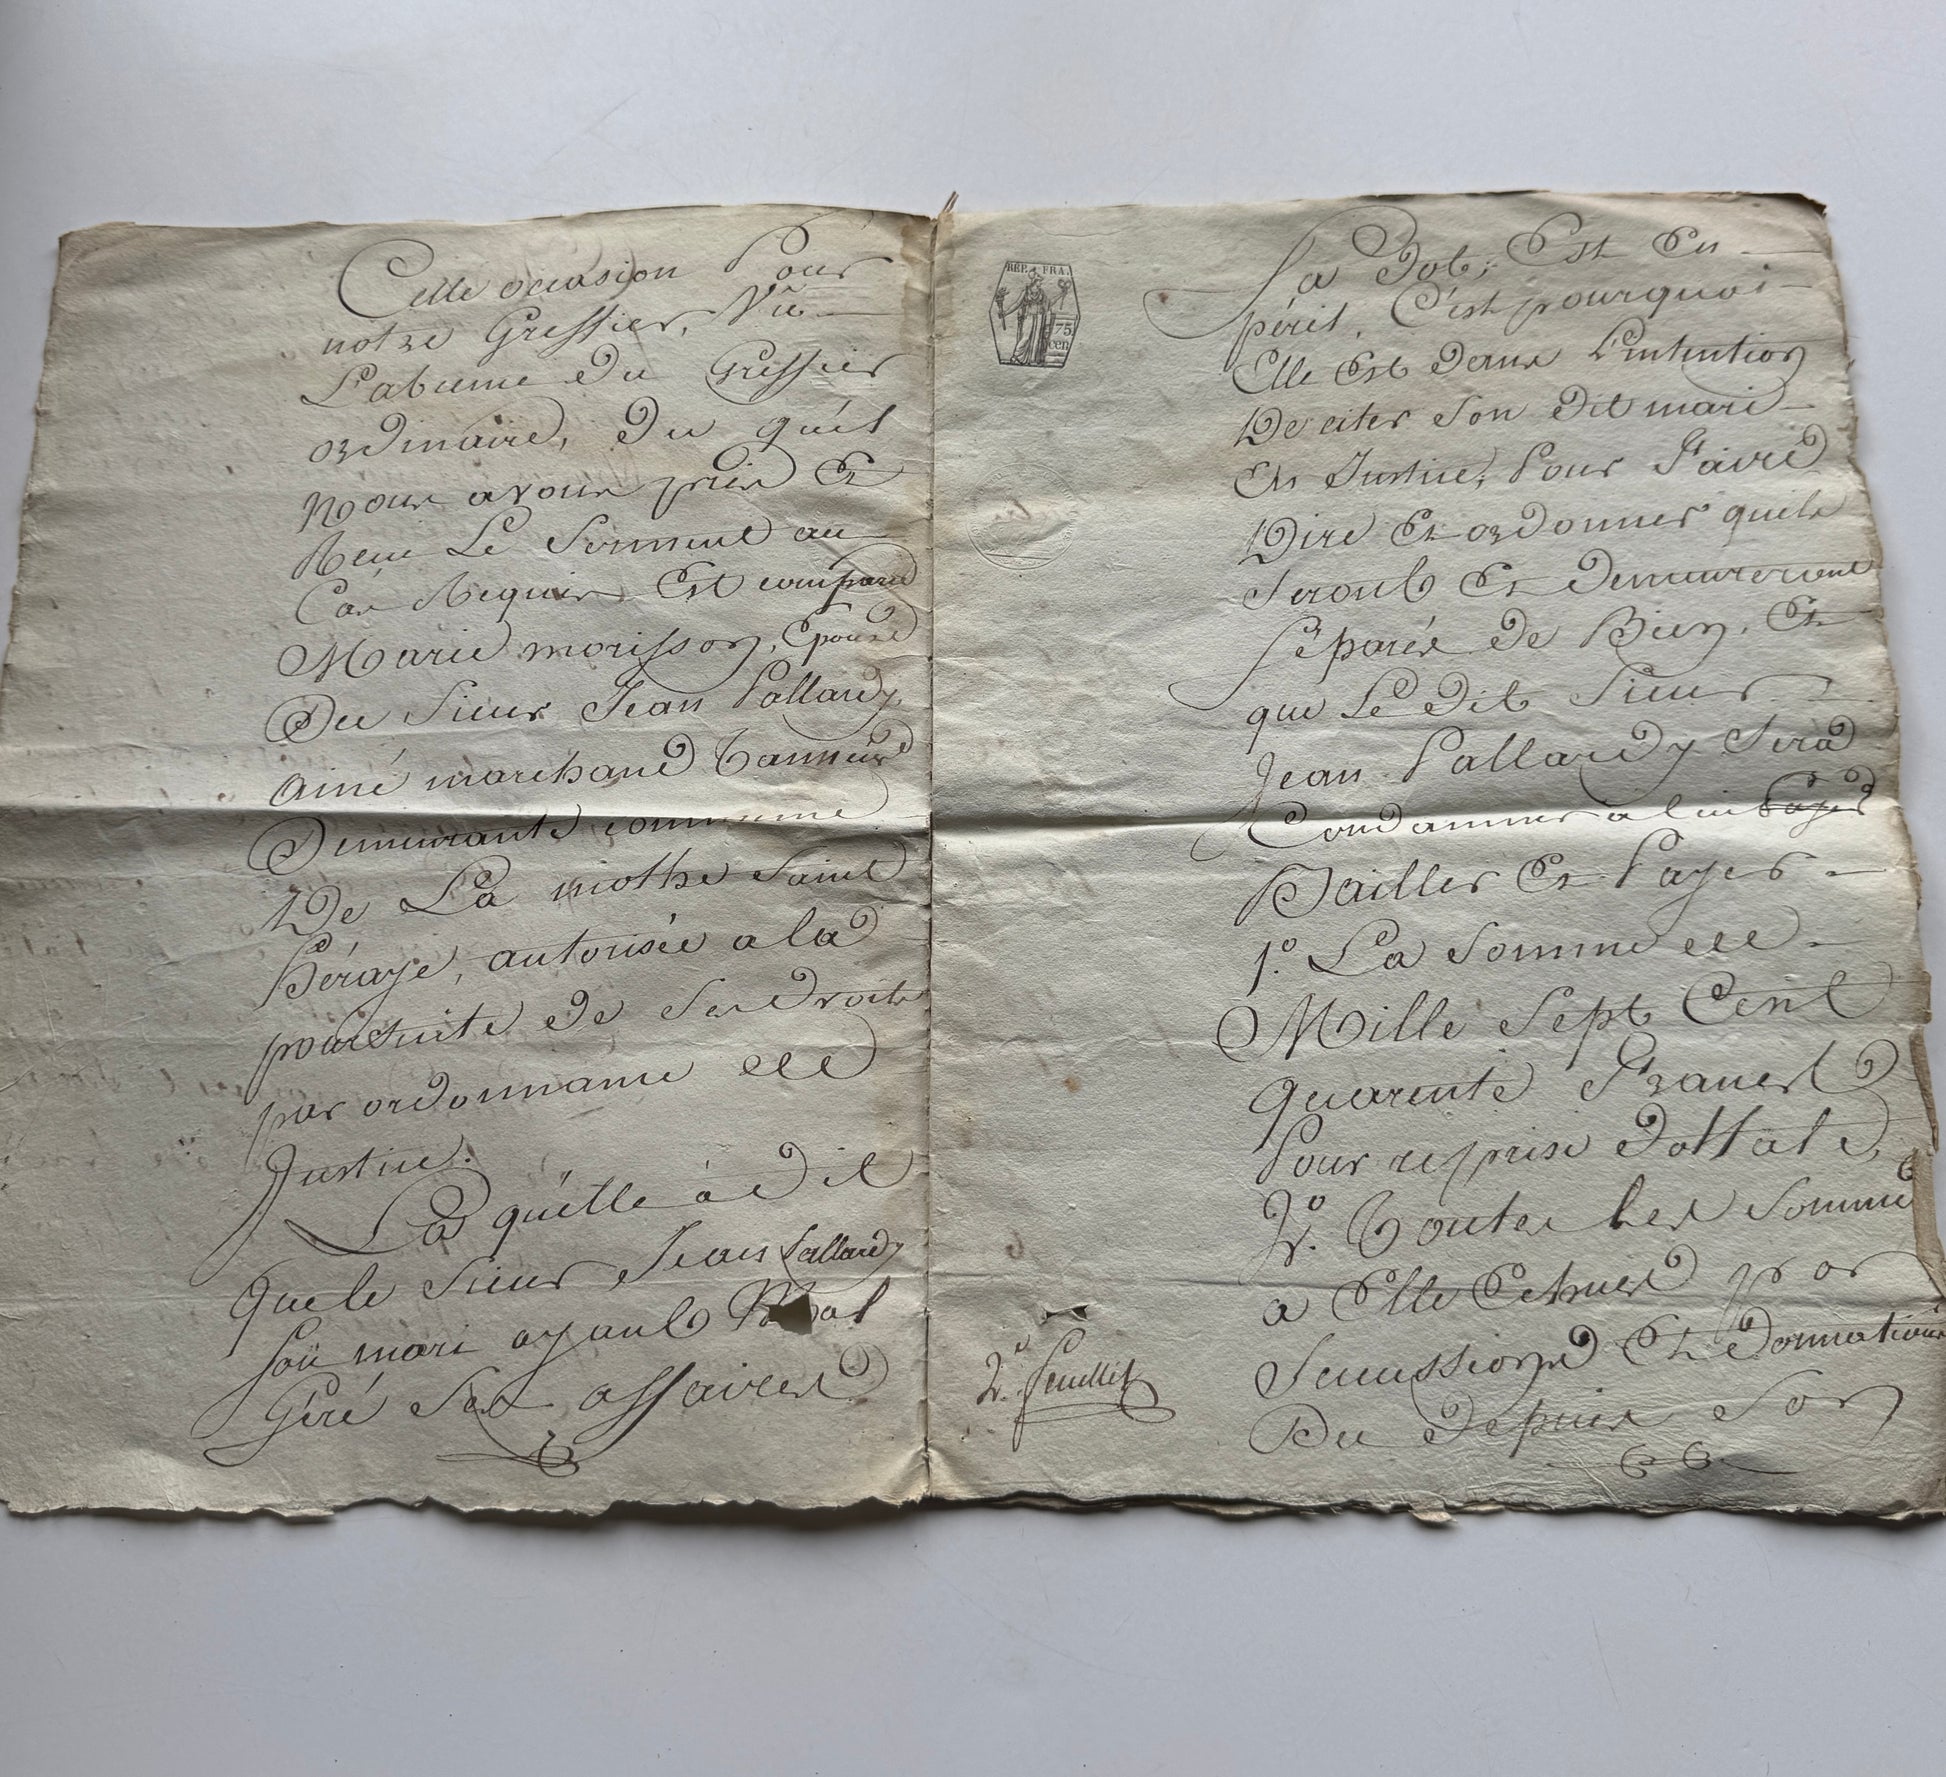 Cette occasion Pour
notre Greffier, Vû
L'absence du Greffier
ordinaire, du quél
Nous avons pris Et
Recu Le Serment au
Cas Requis Est comparue
Marie morisson, Epouse
Du Sieur Jean Pallardy
ainé marchand Tanneur
Demeurante commune
De La mothe Saint
Héraye, autorisée a la
poursuite de Ses Droits
par ordonnance de
Justice.
La quélle à Dit
que le Sieur Jean Pallardy
son mari ayant Mal
Géré Ses affaires
REP. FRA.
75
cen.
2e. feuillet
Sa Dot, Est En
péril, C'est pourquoi
Elle Est Dans L'intention
De citer Son Dit mari
En Justice, Pour Faire
Dire Et ordonner quils
Seront Et Demeureront
Séparés de Bien, Et
que Le Dit Sieur
Jean Pallardy Sera
Condamné a lui Payer
Bailler Et Payer
1.º La Somme de
Mille Sept Cent
quarente Francs
Pour reprise Dottale,
2.º Toutes les Somme
a Elle Echues par
Sucussions Et Donnations
Du Depuis Son